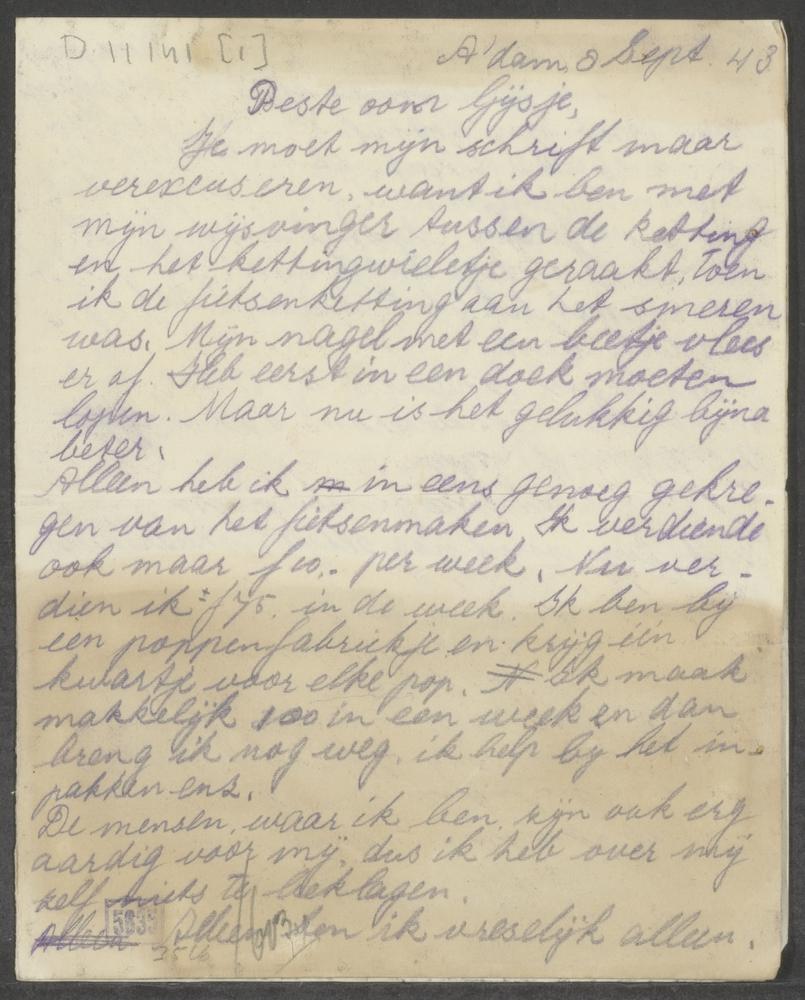 D 11141 [1]
A'dam, 8 Sept. 43
Beste oom Gijsje,
Je moet mijn schrift maar
verexcuseren, want ik ben met
mijn wijsvinger tussen de ketting
en het kettingwieletje geraakt, toen
ik de fietsenketting aan het smeren
was. Mijn nagel met een beetje vlees
er af. Heb eerst in een doek moeten
lopen. Maar nu is het gelukkig bijna
beter.
Alleen heb ik m in eens genoeg gekre-
gen van het fietsenmaken. Ik verdiende
ook maar f 10.- per week. Nu ver-
dien ik ± f 75. in de week. Ik ben bij
een poppenfabriekje en krijg één
kwartje voor elke pop. N Ik maak
makkelijk 100 in een week en dan
breng ik nog weg, ik help bij het in-
pakken enz.
De mensen, waar ik ben, zijn ook erg
aardig voor mij, dus ik heb over mij
zelf niets te beklagen.
Alleen Alleen ben ik vreselijk alleen.